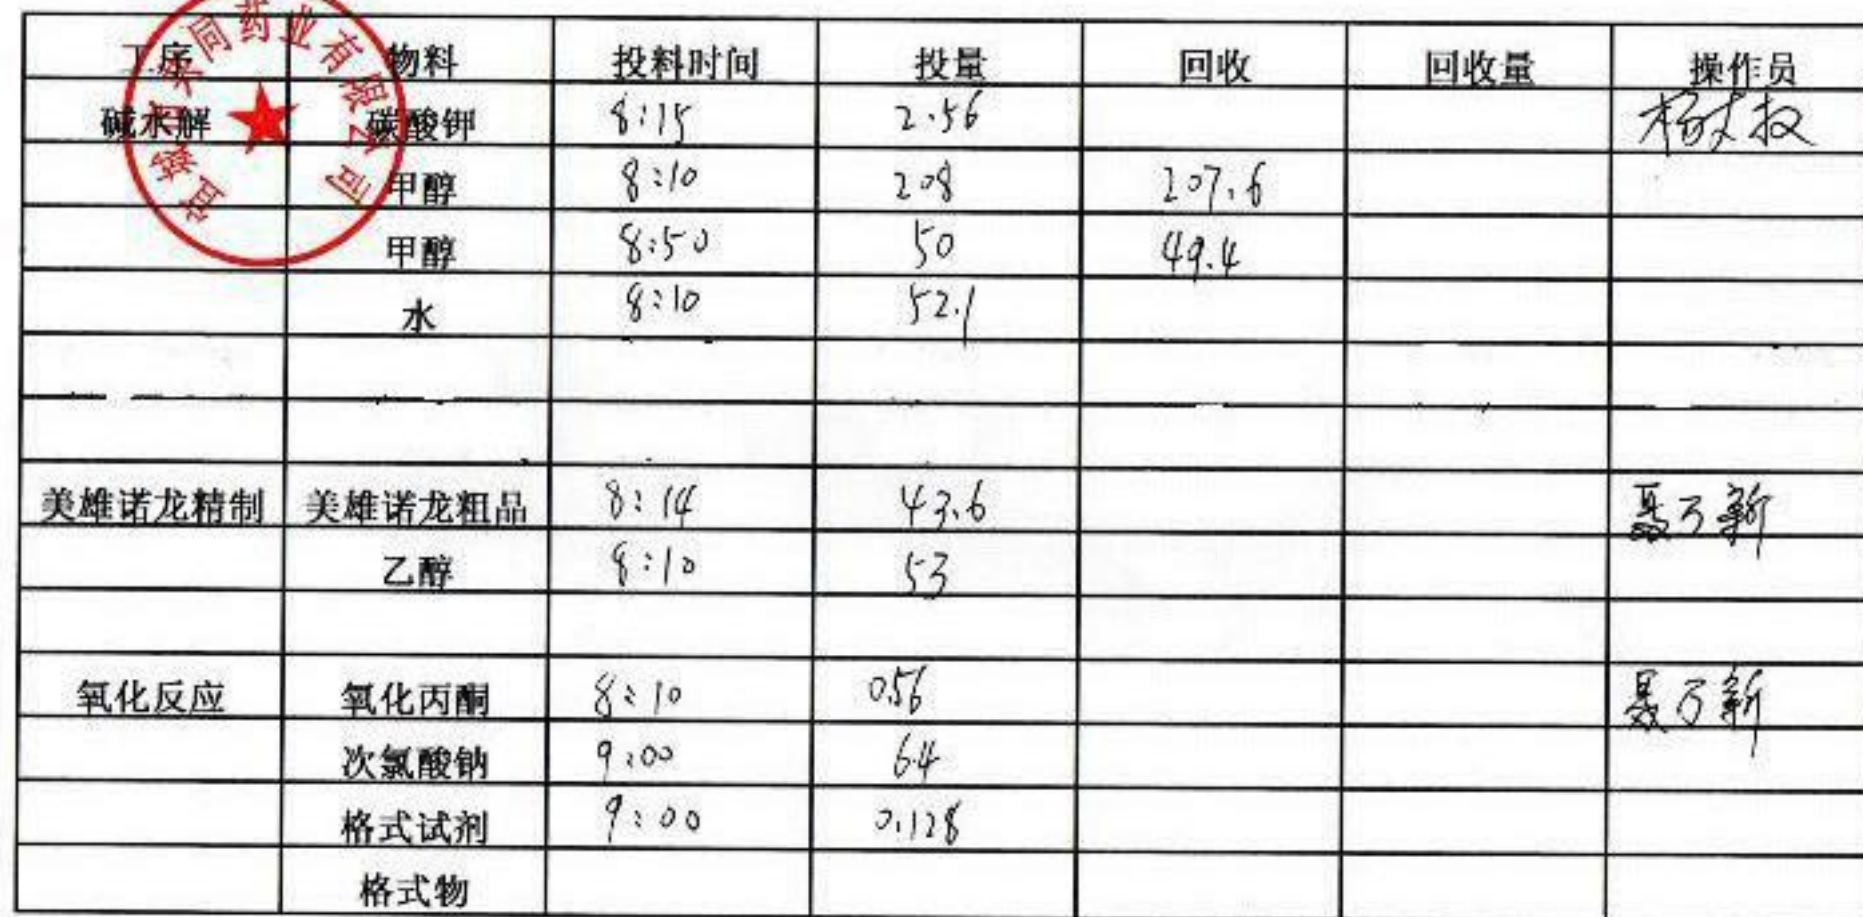 工序 物料 投料时间 投量 回收 回收量 操作员
碱水解 碳酸钾 8:15 2.56
甲醇 8:10 208 207.6
甲醇 8:50 50 49.4
水 8:10 52.1
美雄诺龙精制 美雄诺龙粗品 8:14 43.6
乙醇 8:10 53
氧化反应 氧化丙酮 8:10 0.56
次氯酸钠 9:00 64
格式试剂 9:00 0.128
格式物
宜城市共同药业有限公司